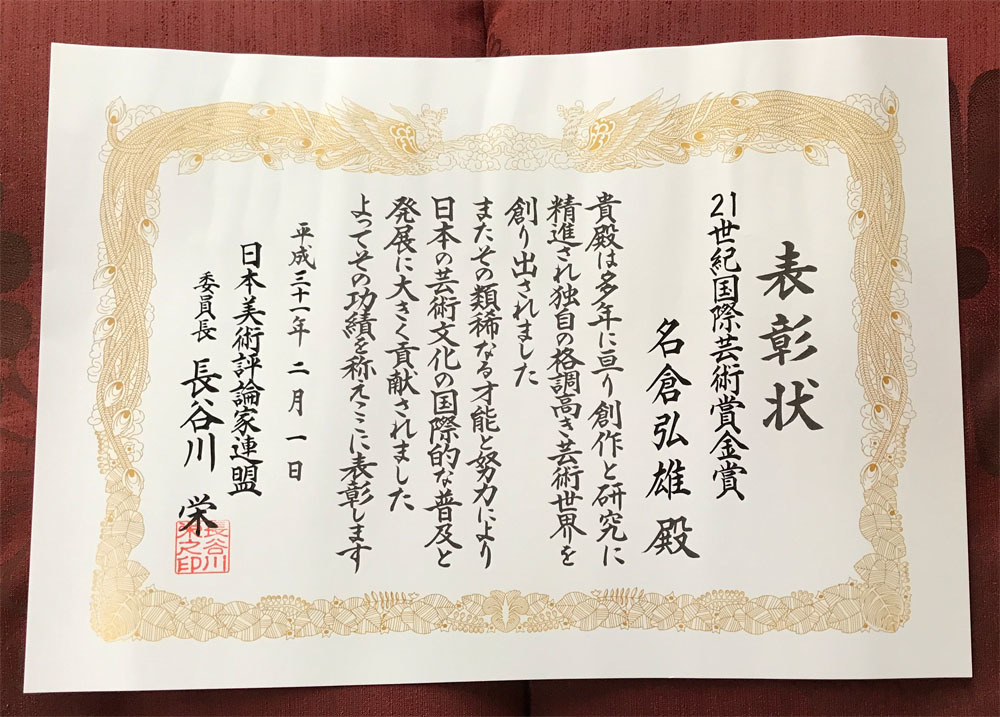 表彰状
21世紀国際芸術賞金賞
名倉弘雄 殿
貴殿は多年に亘り創作と研究に
精進され独自の格調高き芸術世界を
創り出されました
またその類稀なる才能と努力により
日本の芸術文化の国際的な普及と
発展に大きく貢献されました
よってその功績を称えここに表彰します
平成三十一年 二月 一日
日本美術評論家連盟
委員長 長谷川 栄
長谷川
栄之印